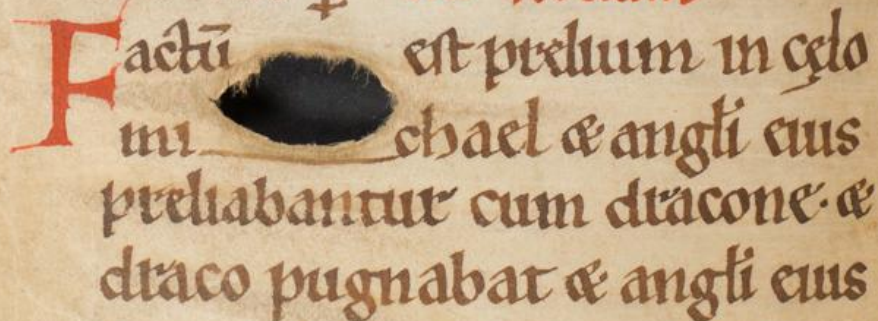 Factū est prelium in cęlo
mi chael & angłi eius
preliabantur cum dracone · &
draco pugnabat & angłi eius